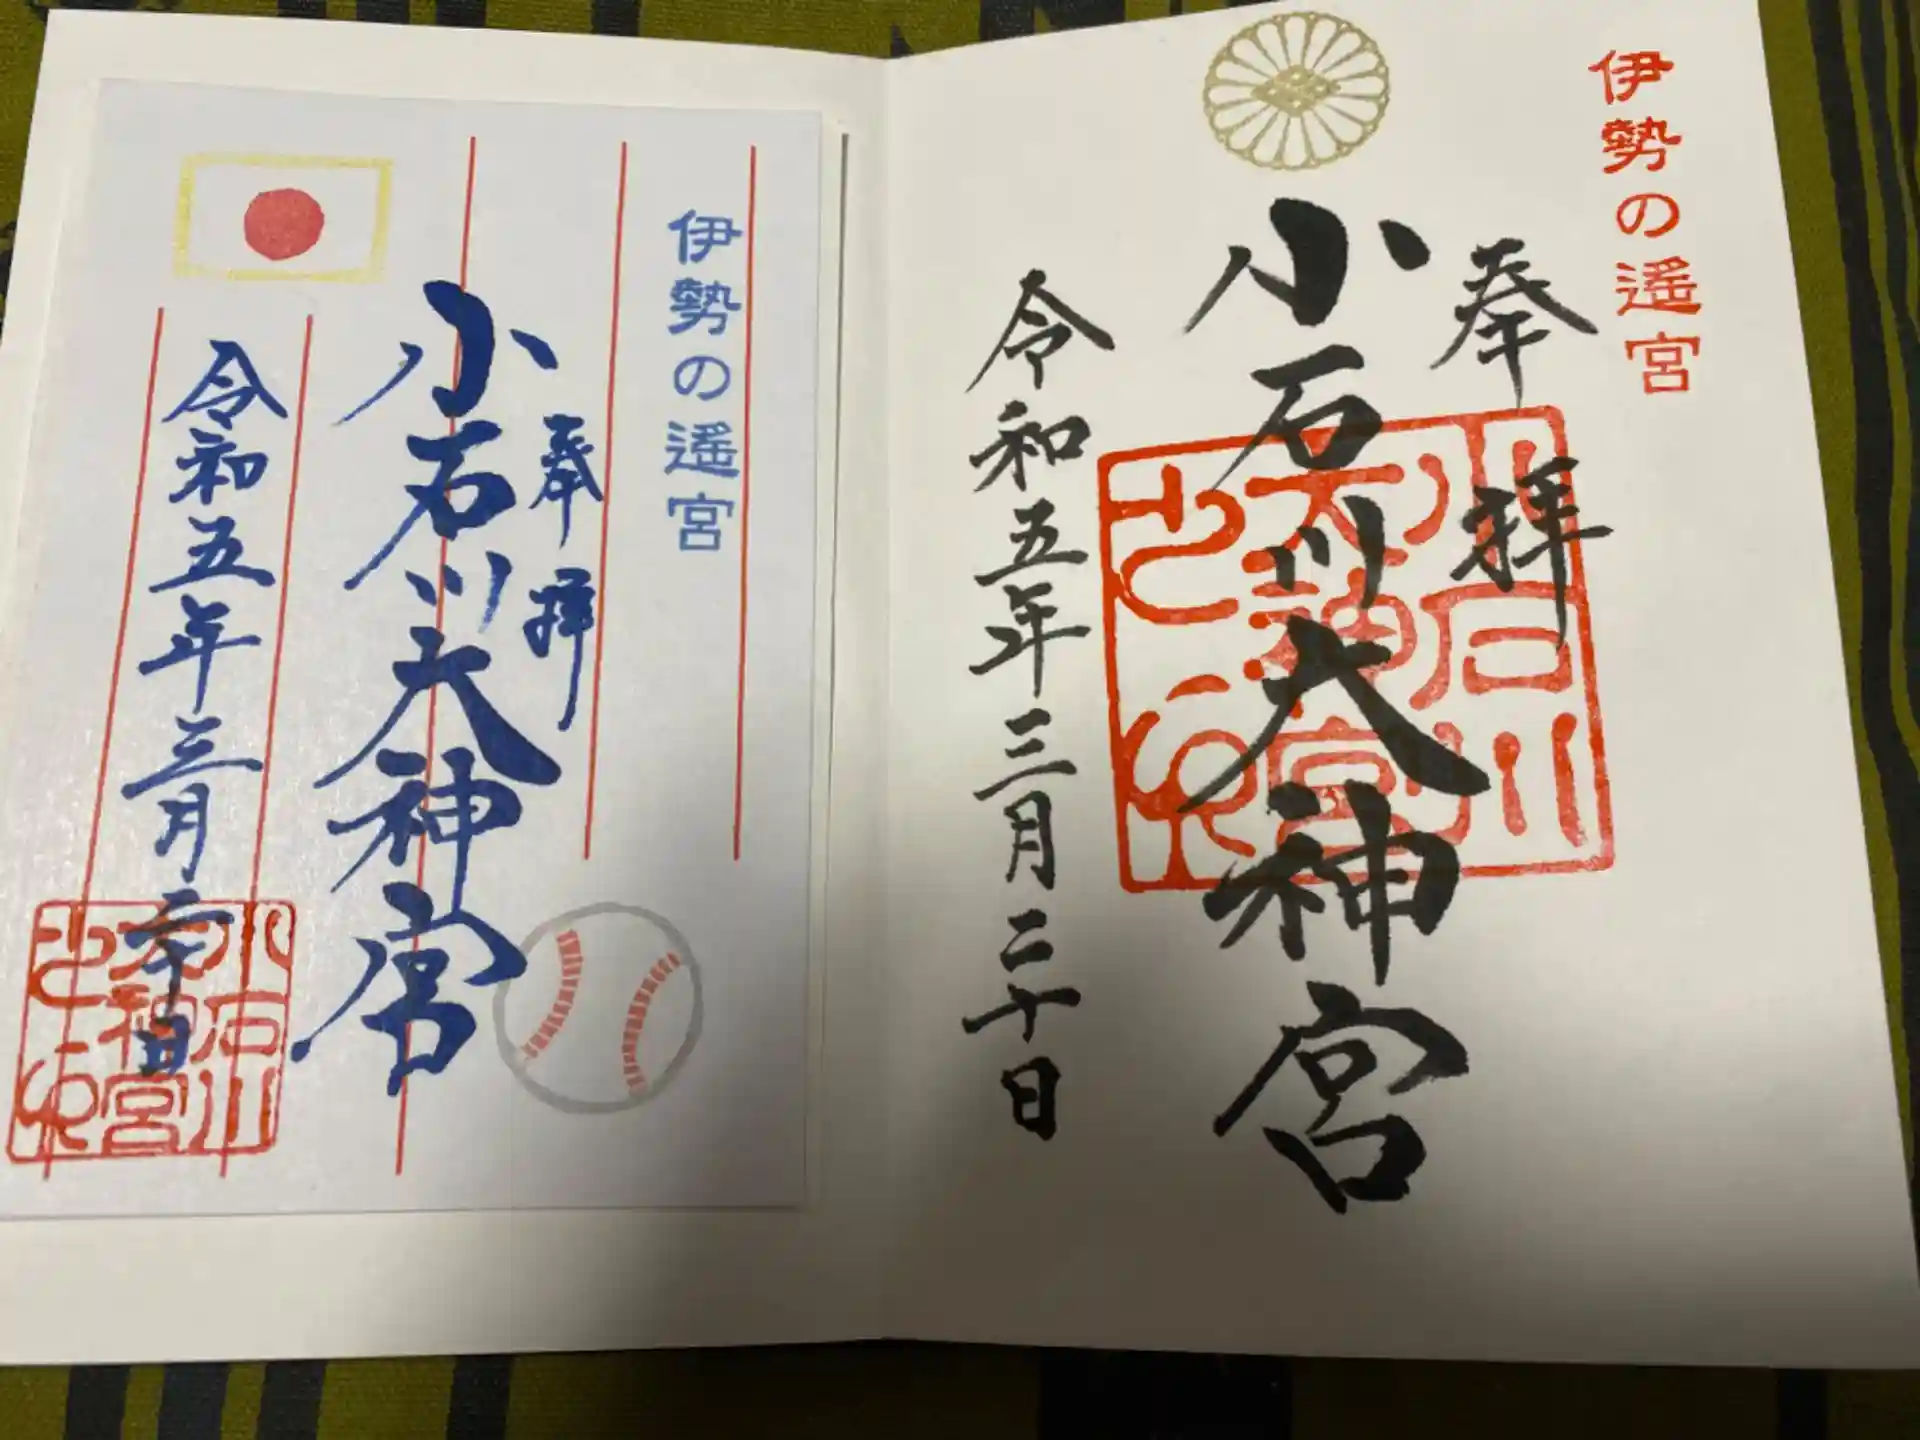 伊勢の遥宮
奉拝
小石川大神宮
小石川
大神宮
之印
令和五年三月二十日
伊勢の遥宮
奉拝
小石川大神宮
令和五年三月二十日
小石川
大神宮
之印